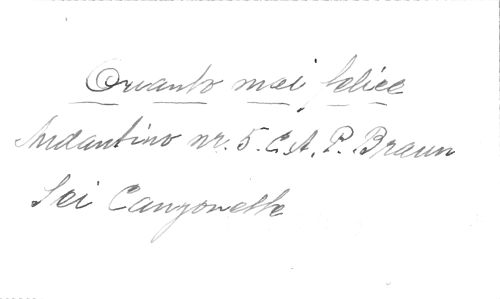 Quanto mai felice
Andantino nr. 5. C. A. P. Braun
Sei Canzonette